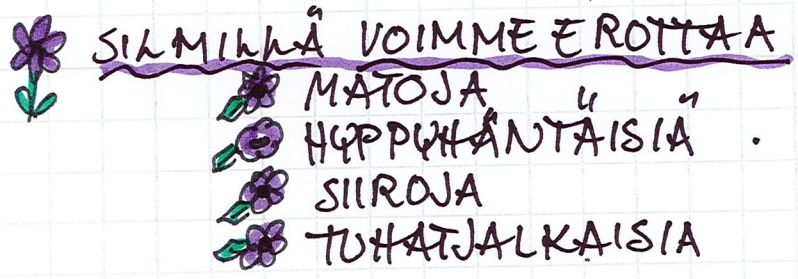 SILMILLÄ VOIMME EROTTAA
MATOJA
HYPPYHÄNTÄISIÄ .
SIIROJA
TUHATJALKAISIA